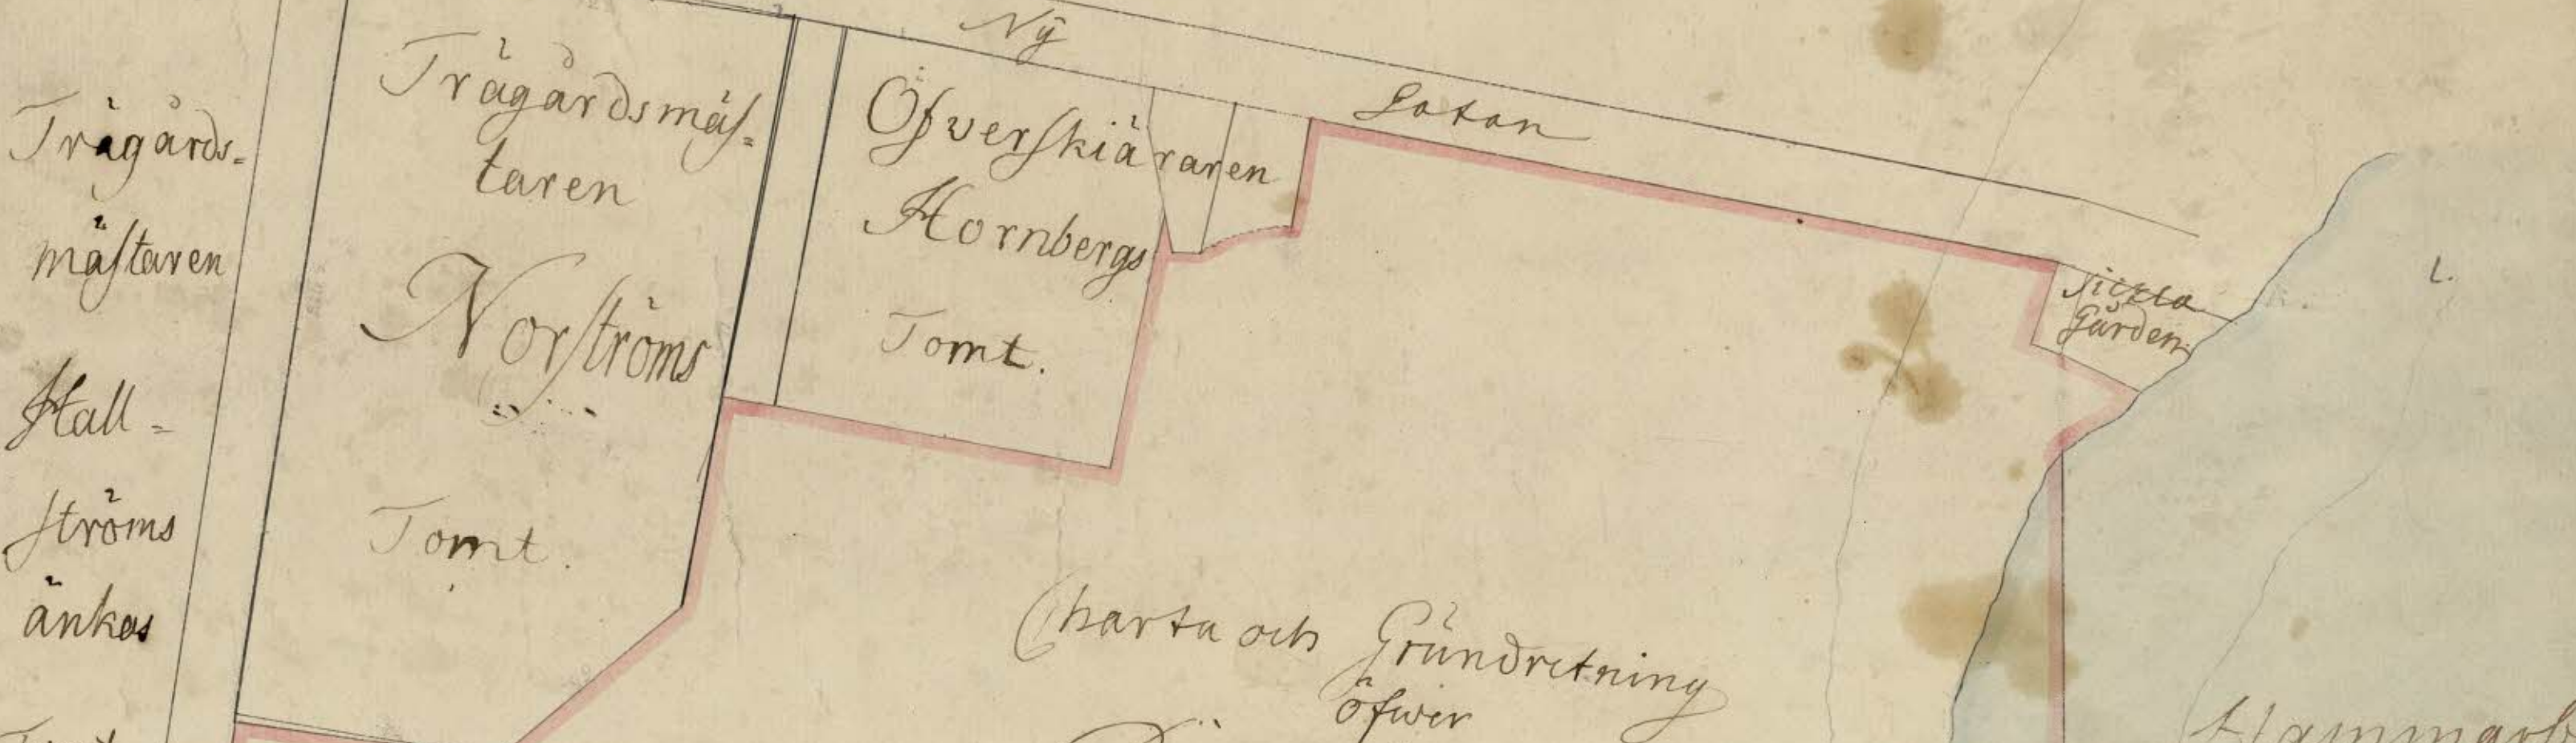 Ny
Gatan
Trägårds-
mästaren
Hall-
ströms
änkas
Trägårdsmäs-
taren
Norströms
Tomt.
Öfverskiäraren
Hornbergs
Tomt.
Sickla
Gården
Charta och Grundretning
öfwer